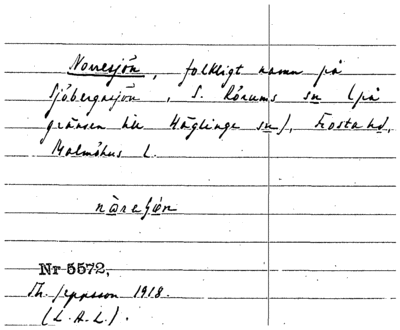 Norresjön, folkligt namn på
Sjöbergasjön, S. Rörums sn (på
gränsen till Häglinge sn), Frosta hd,
Malmöhus l.
Nr 5572,
Th. Jeppsson 1918.
(L.A.L.).